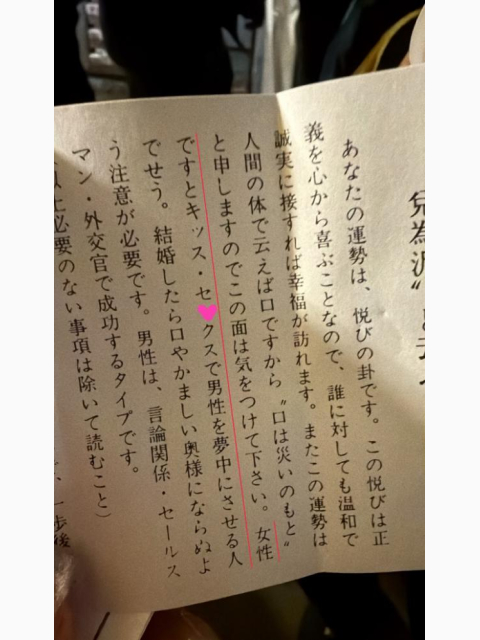 兌為沢〟と云
あなたの運勢は、悦びの卦です。この悦びは正
義を心から喜ぶことなので、誰に対しても温和で
誠実に接すれば幸福が訪れます。またこの運勢は
人間の体で云えば口ですから〝口は災いのもと〟
と申しますのでこの面は気をつけて下さい。女性
ですとキッス・セ♥クスで男性を夢中にさせる人
でせう。結婚したら口やかましい奥様にならぬよ
う注意が必要です。男性は、言論関係・セールス
マン・外交官で成功するタイプです。
必要のない事項は除いて読むこと）
一歩後